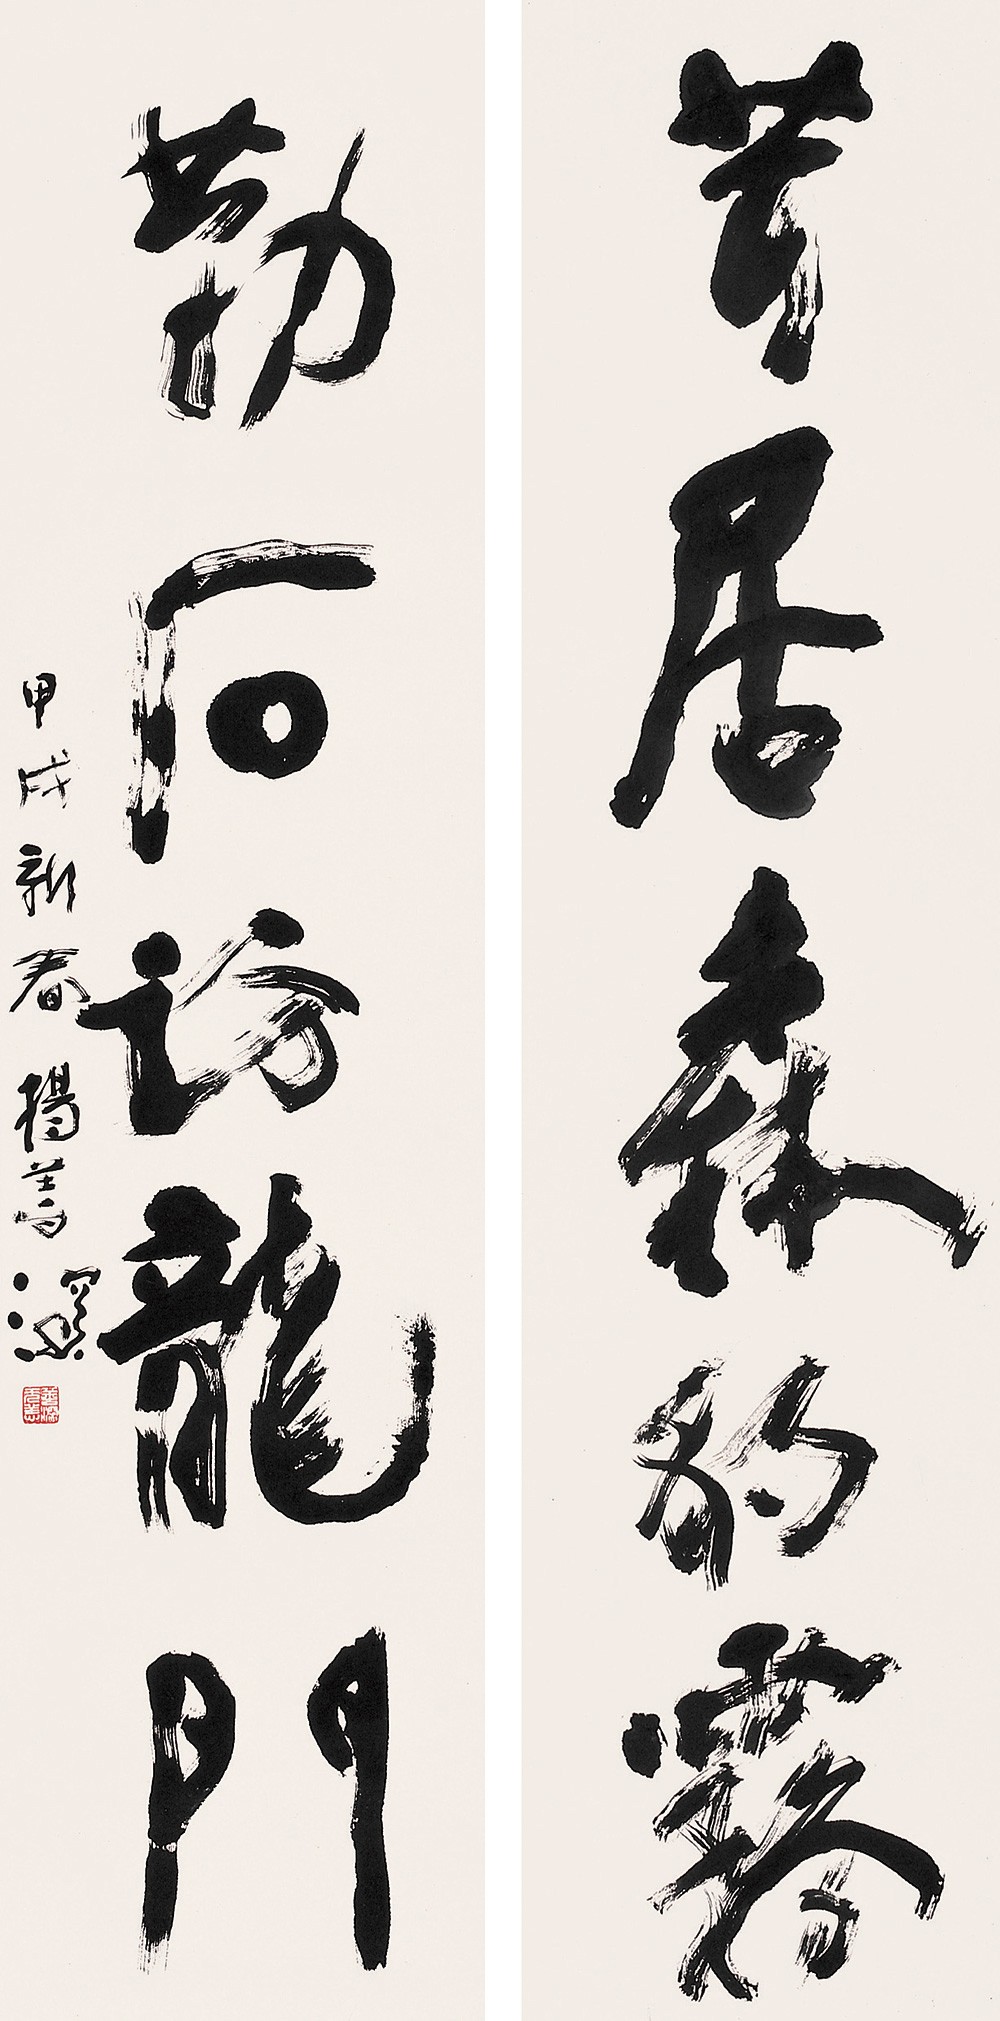 昔居森豹霧
勒石訪龍門
甲戌新春楊善深